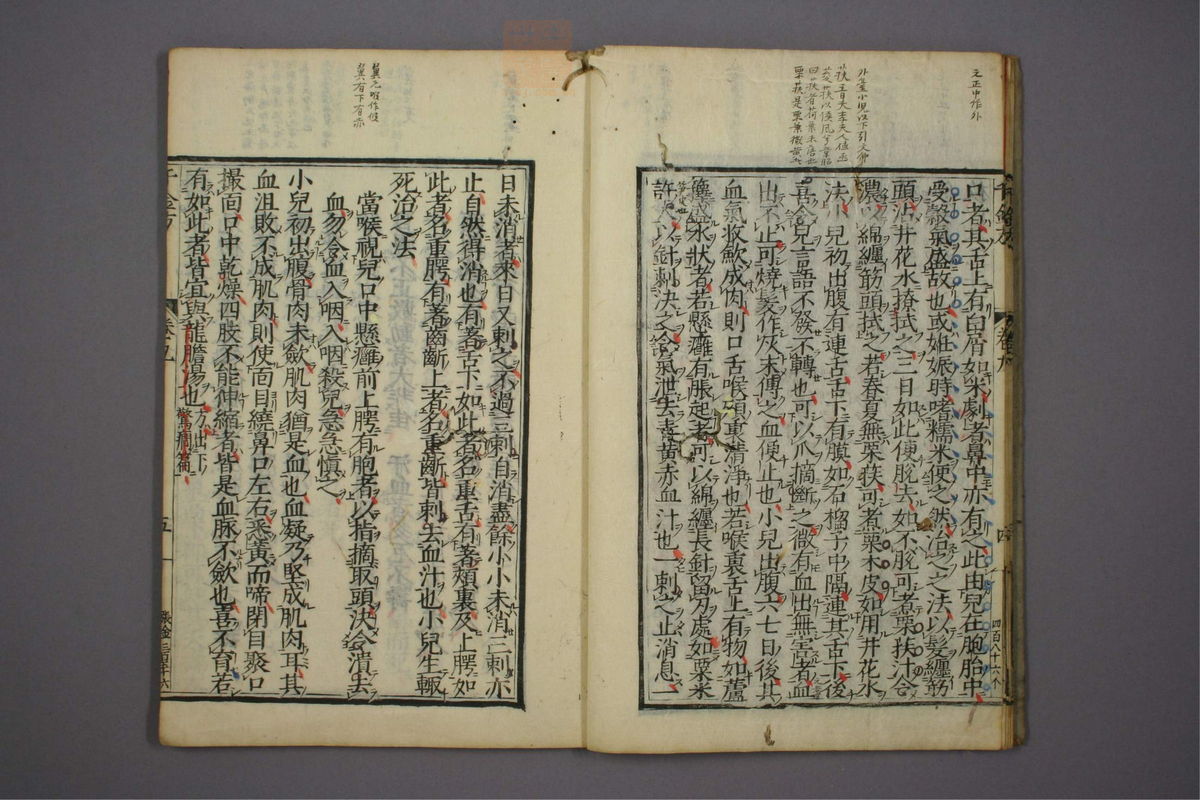 之正中作外
口者其舌上有白屑如米劇者鼻中亦有之此由兒在胞胎中
受穀氣盛故也或妊娠時嗜糯米使之然治之之法以髮纏筯
頭沾井花水撩拭之三日如此便脫去如不脫可煮栗扶汁令
濃以綿纏筋頭拭之若春夏無栗扶可煮栗木皮如用井花水
法小兒初出腹有連舌舌下有膜如石榴子中隔連其舌下後
喜令兒言語不發不轉也可以爪摘斷之微有血出無害若血
出不止可燒髮作灰末傅之血便止也小兒出腹六七日後其
血氣收斂成肉則口舌喉頰裏清淨也若喉裏舌上有物如蘆
籜盛水狀者若懸癰有脹起者可以綿纏長針留刃處如粟米
許大以針刺決之令氣泄去青黃赤血汁也一刺之止消息
千金方
卷九
四
四百八十六个
日未消者來日又刺之不過三刺自消盡餘小小未消三刺亦
止自然得消也有著舌下如此者名重舌有著頰裏及上腭如
此者名重腭有著齒齗上者名重齗皆刺去血汁也小兒生輒
死治之法
當喉視兒口中懸癰前上腭有胞者以指摘取頭決令潰去
血勿令血入咽入咽殺兒急急慎之
小兒初出腹骨肉未斂肌肉猶是血也血凝乃堅成肌肉耳其
血沮敗不成肌肉則使面目繞鼻口左右悉黃而啼閉目聚口
撮面口中乾燥四肢不能伸縮者皆是血脉不斂也喜不育若
有如此者皆宜與龍膽湯也方出下驚癇篇
千金方
卷五
五